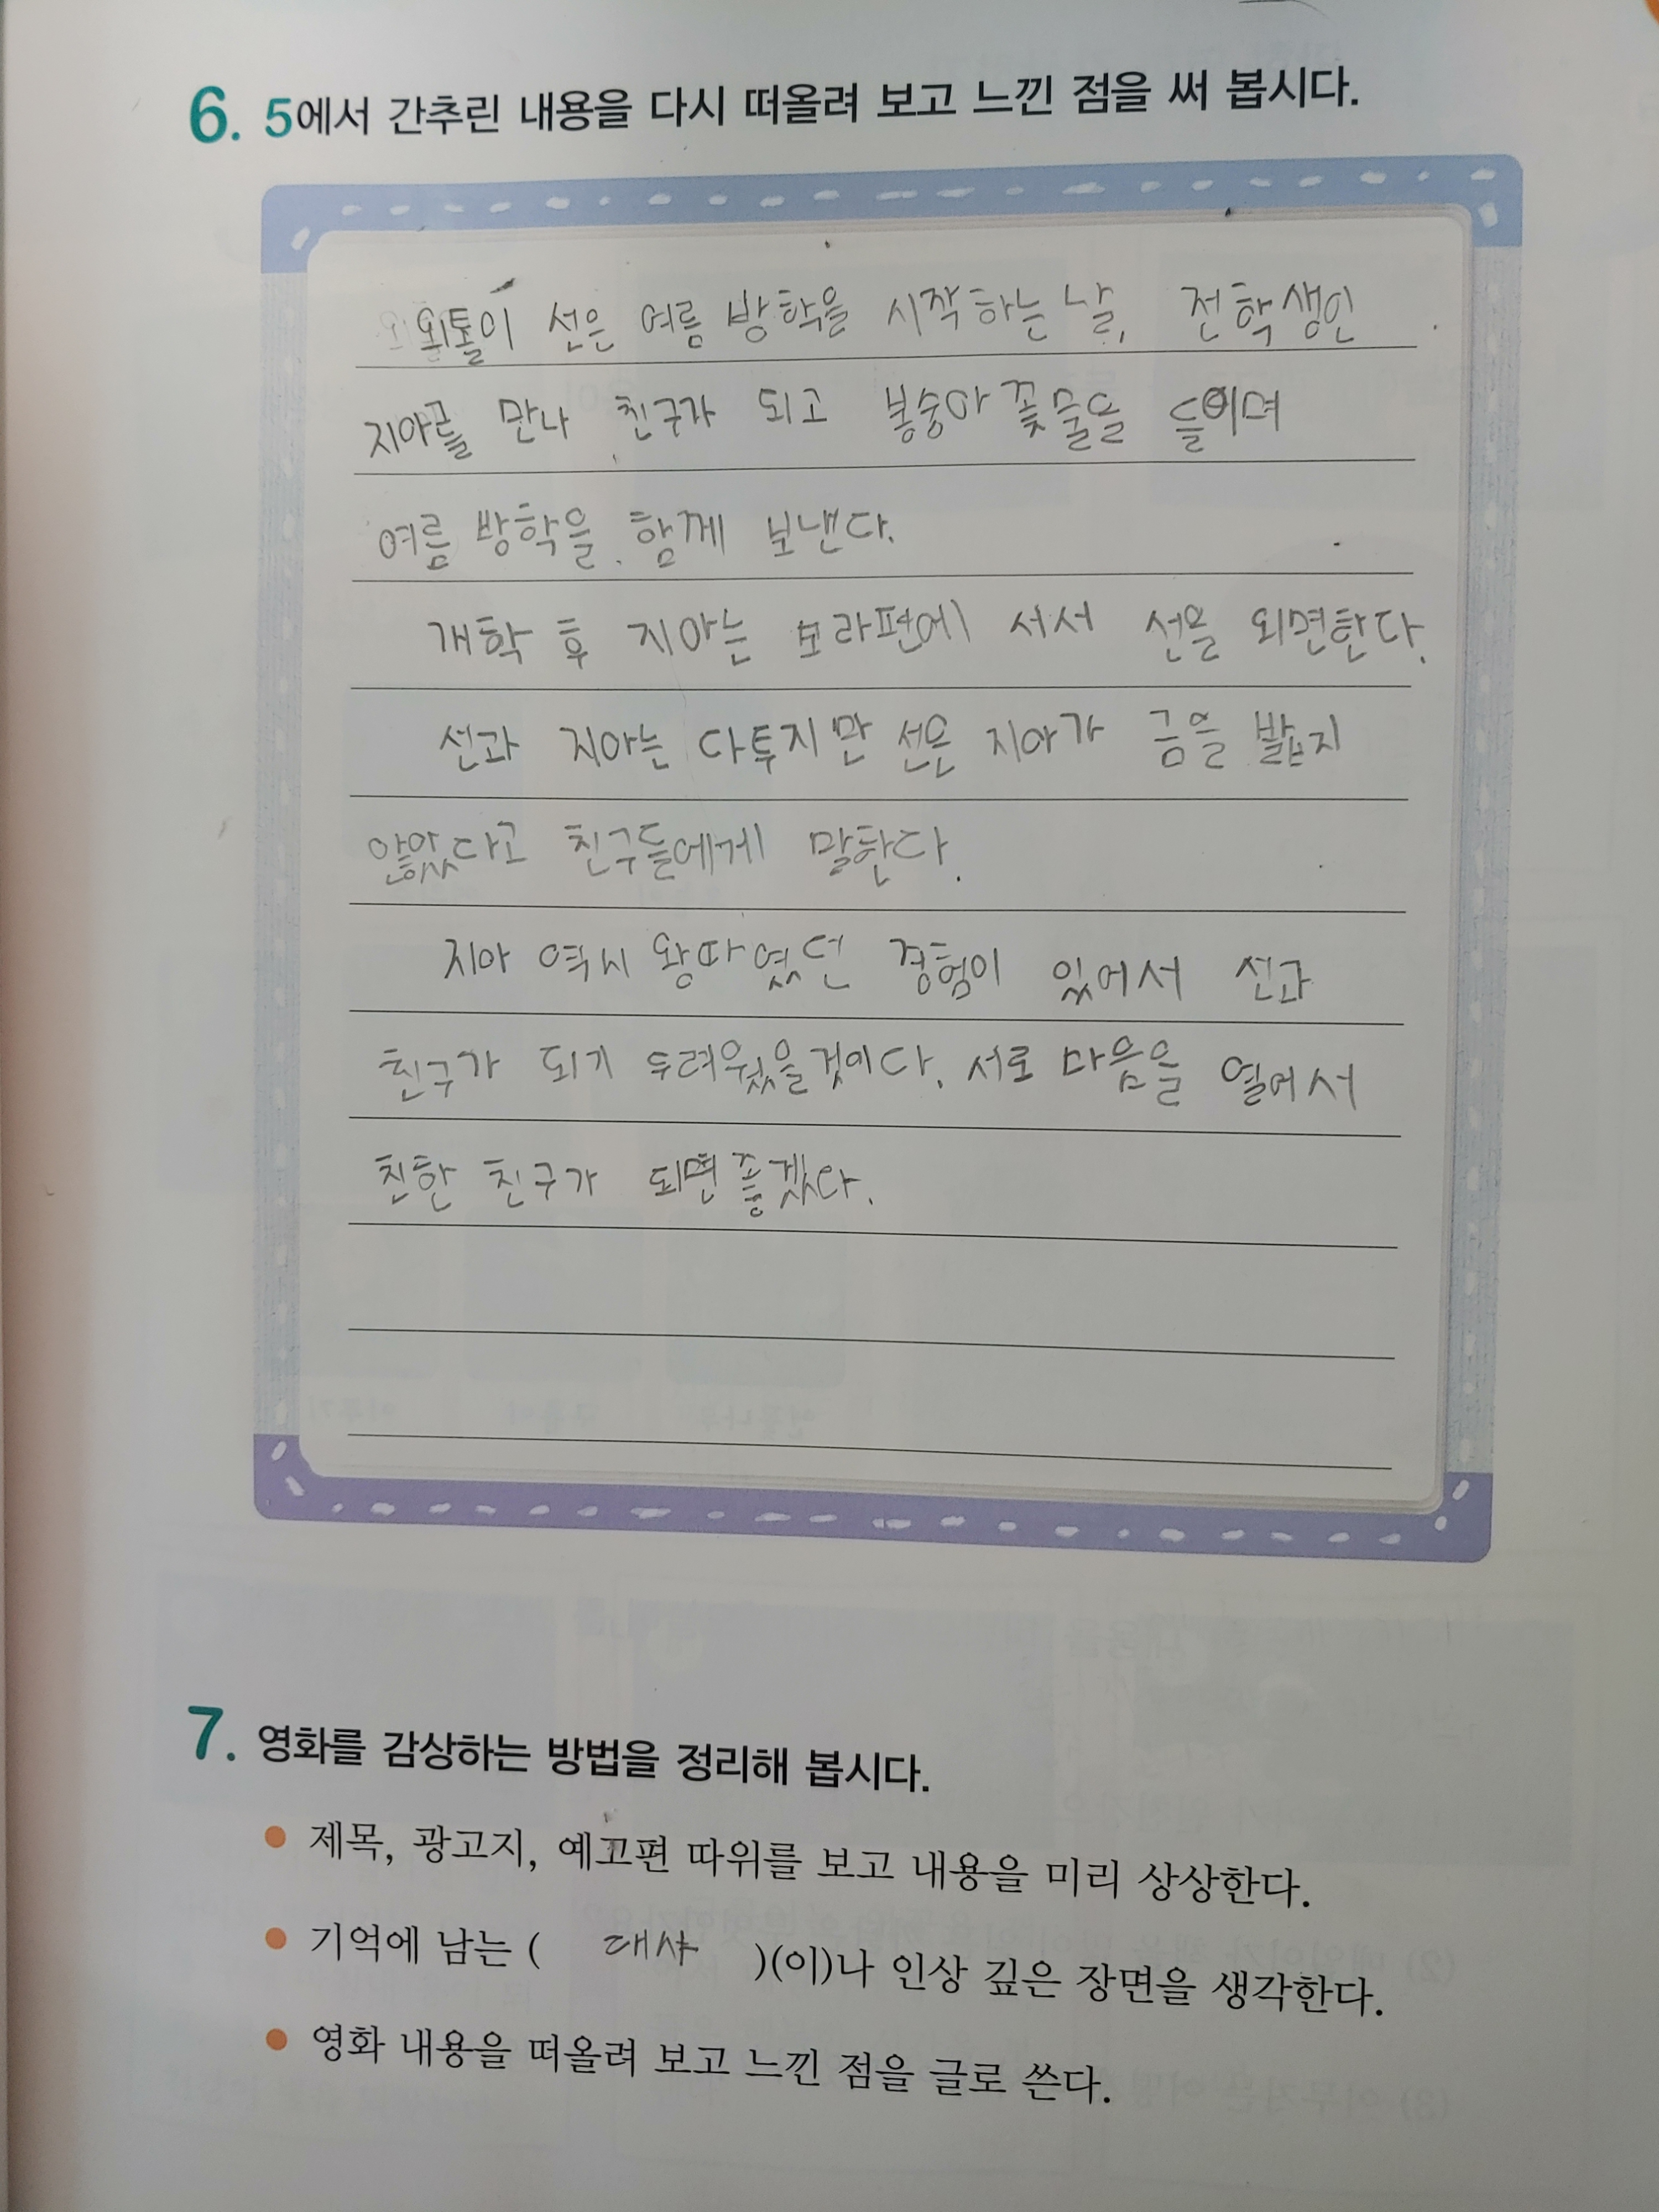 6. 5에서 간추린 내용을 다시 떠올려 보고 느낀 점을 써 봅시다.
외톨이 선은 여름 방학을 시작하는 날, 전학생인
지아를 만나 친구가 되고 봉숭아 꽃물을 들이며
여름 방학을 함께 보낸다.
개학 후 지아는 보라편에 서서 선을 외면한다.
선과 지아는 다투지만 선은 지아가 금을 밟지
않았다고 친구들에게 말한다.
지아 역시 왕따였던 경험이 있어서 선과
친구가 되기 두려웠을것이다. 서로 마음을 열어서
친한 친구가 되면 좋겠다.
7. 영화를 감상하는 방법을 정리해 봅시다.
● 제목, 광고지, 예고편 따위를 보고 내용을 미리 상상한다.
● 기억에 남는 ( 대사 )(이)나 인상 깊은 장면을 생각한다.
● 영화 내용을 떠올려 보고 느낀 점을 글로 쓴다.